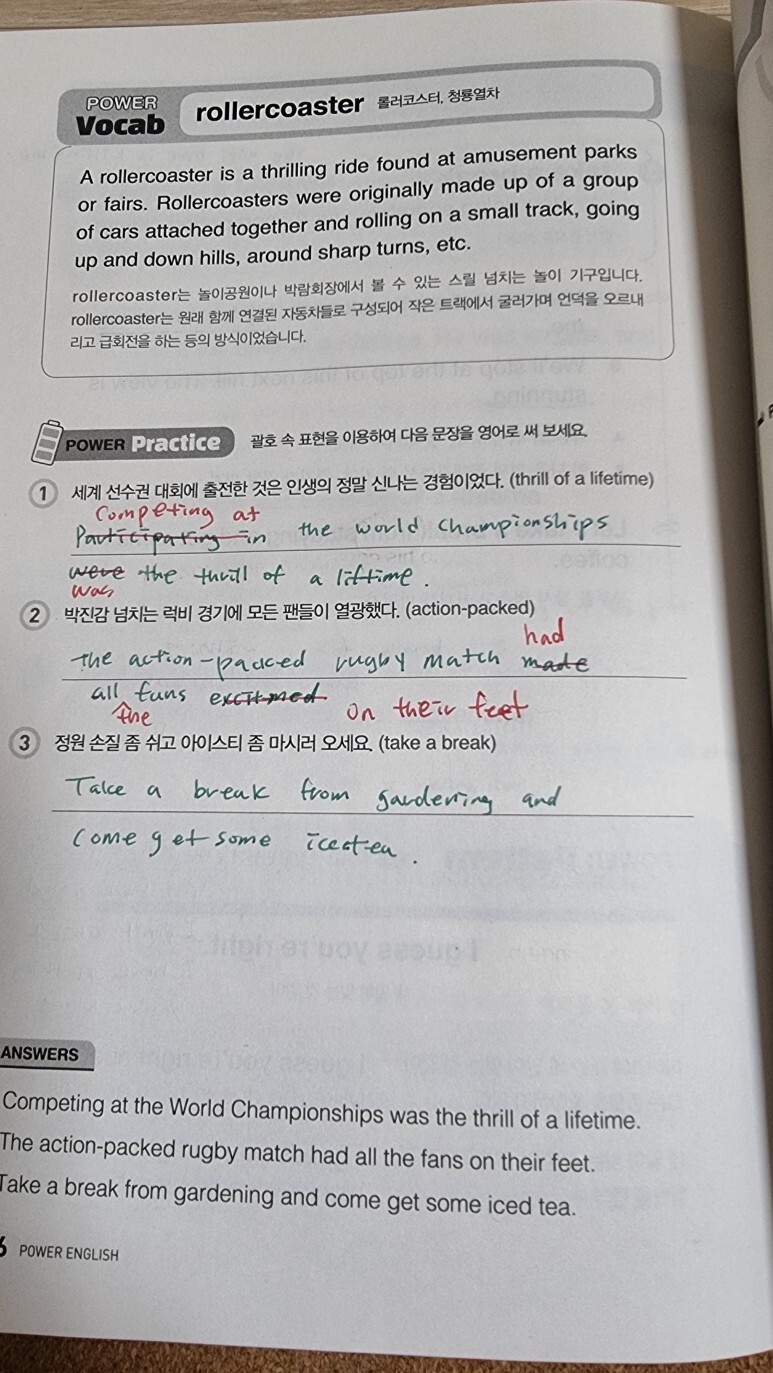 POWER
Vocab
rollercoaster 롤러코스터, 청룡열차
A rollercoaster is a thrilling ride found at amusement parks
or fairs. Rollercoasters were originally made up of a group
of cars attached together and rolling on a small track, going
up and down hills, around sharp turns, etc.
rollercoaster는 놀이공원이나 박람회장에서 볼 수 있는 스릴 넘치는 놀이 기구입니다.
rollercoaster는 원래 함께 연결된 자동차들로 구성되어 작은 트랙에서 굴러가며 언덕을 오르내
리고 급회전을 하는 등의 방식이었습니다.
POWER Practice 괄호 속 표현을 이용하여 다음 문장을 영어로 써 보세요.
1 세계 선수권 대회에 출전한 것은 인생의 정말 신나는 경험이었다. (thrill of a lifetime)
Competing at
Participating in the world championships
were the thrill of a liftime.
was
2 박진감 넘치는 럭비 경기에 모든 팬들이 열광했다. (action-packed)
had
the action-packed rugby match made
all funs
the on their feet
3 정원 손질 좀 쉬고 아이스티 좀 마시러 오세요. (take a break)
Take a break from gardening and
come get some
ANSWERS
Competing at the World Championships was the thrill of a lifetime.
The action-packed rugby match had all the fans on their feet.
Take a break from gardening and come get some iced tea.
6 POWER ENGLISH